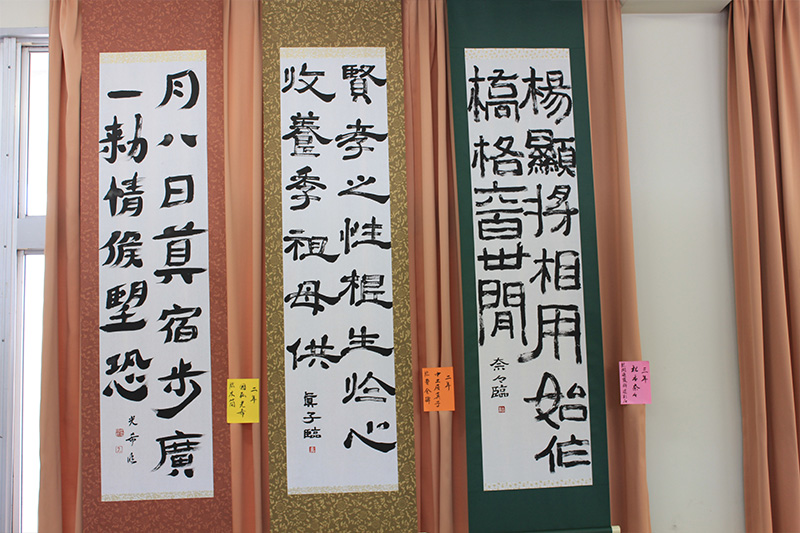 楊顯将相用始作
橋格六百廿三閒
奈々臨
賢孝之性根生於心
收養季祖母供
眞子臨
月八日莫宿步廣
一敕情候望恐
光希臨
三年
二年
二年